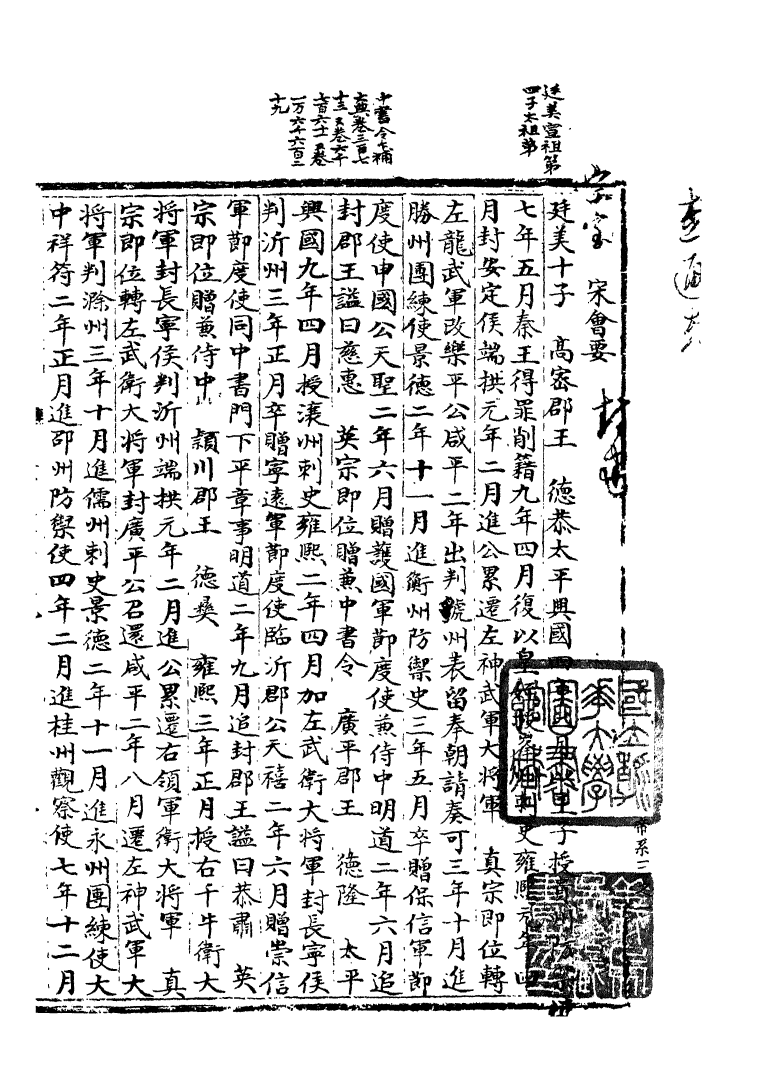 廷美宣祖第
四子太祖弟
宗室　宋會要
廷美十子　高密郡王　德恭太平興國四年
七年五月秦王得罪削籍九年四月復以皇
月封安定侯端拱元年二月進公累遷左神武軍大將軍　真宗即位轉
左龍武軍改樂平公咸平二年出判虢州表留奉朝請奏可三年十月進
勝州團練使景德二年十一月進衡州防禦史三年五月卒贈保信軍節
度使申國公天聖二年六月贈護國軍節度使兼侍中明道二年六月追
封郡王謚曰慈惠　英宗即位贈兼中書令　廣平郡王　德隆　太平
興國九年四月授瀼州刺史雍熙二年四月加左武衛大將軍封長寧侯
判沂州三年正月卒贈寧遠軍節度使臨沂郡公天禧二年六月贈崇信
軍節度使同中書門下平章事明道二年九月追封郡王謚曰恭肅　英
宗即位贈兼侍中　潁川郡王　德彝　雍熙三年正月授右千牛衛大
將軍封長寧侯判沂州端拱元年二月進公累遷右領軍衛大將軍　真
宗即位轉左武衛大將軍封廣平公召還咸平二年八月遷左神武軍大
將軍判滁州三年十月進儒州刺史景德二年十一月進永州團練使大
中祥符二年正月進邵州防禦使四年二月進桂州觀察使七年十二月
帝系三